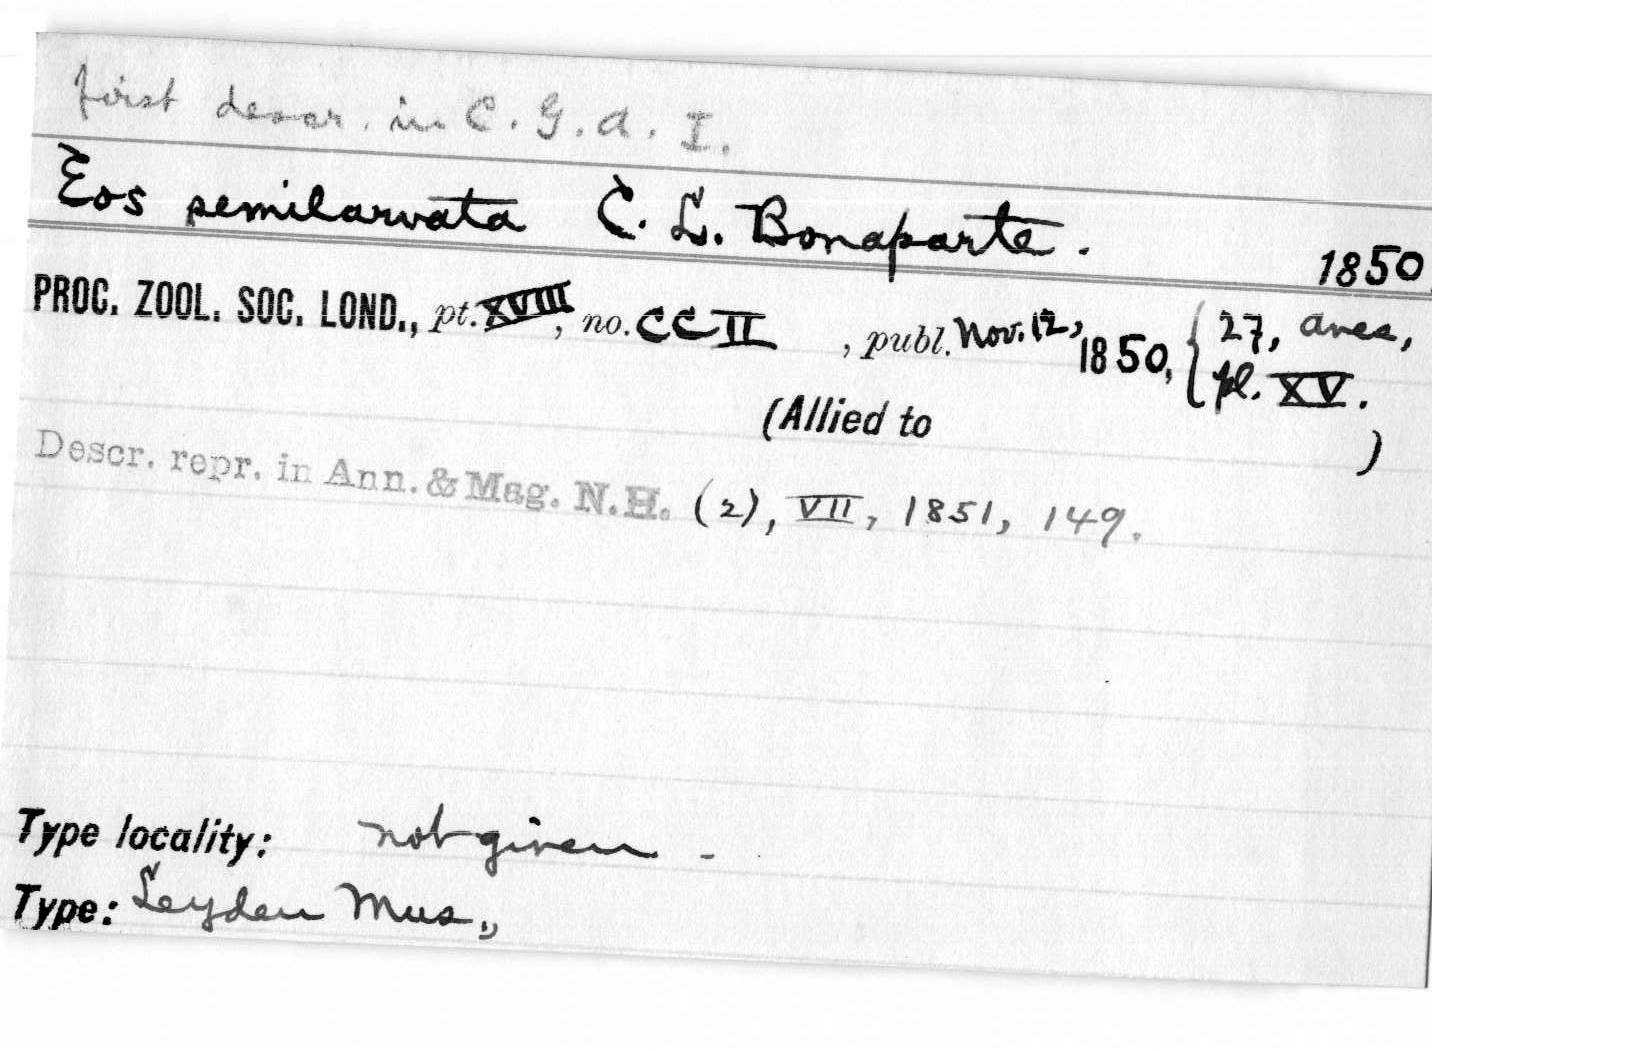 first descr. in C. G. A. I.
Eos semilarvata C. L. Bonaparte. 1850
PROC. ZOOL. SOC. LOND., pt. XVIII, no. CCII , publ. Nov. 12, 1850, { 27, aves,
pl. XV.
(Allied to )
Descr. repr. in Ann. & Mag. N.H. (2), VII, 1851, 149.
Type locality: not given -
Type: Leyden Mus.,